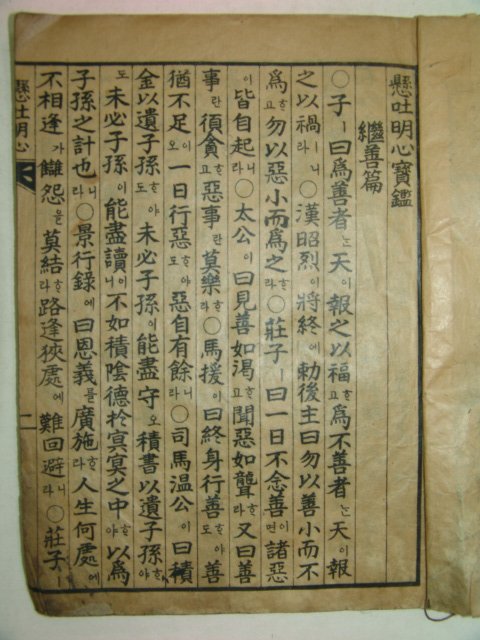 懸吐明心寶鑑
繼善篇
○子ㅣ曰爲善者는天이報之以福하고爲不善者는天이報
之以禍ㅣ니라○漢昭烈이將終에勅後主曰勿以善小而不
爲하고勿以惡小而爲之하라○莊子ㅣ曰一日不念善이면諸惡
이皆自起니라○太公이曰見善如渴하고聞惡如聾하라又曰善
事란須貪하고惡事란莫樂하라○馬援이曰終身行善하야도善
猶不足이오一日行惡하야도惡自有餘니라○司馬温公이曰積
金以遺子孫하야도未必子孫이能盡守오積書以遺子孫하야
도未必子孫이能盡讀이니不如積陰德於冥冥之中하야以爲
子孫之計也니라○景行錄에曰恩義를廣施하라人生何處에
不相逢가讎怨을莫結하라路逢狹處에難回避니라○莊子ㅣ
懸吐明心 一